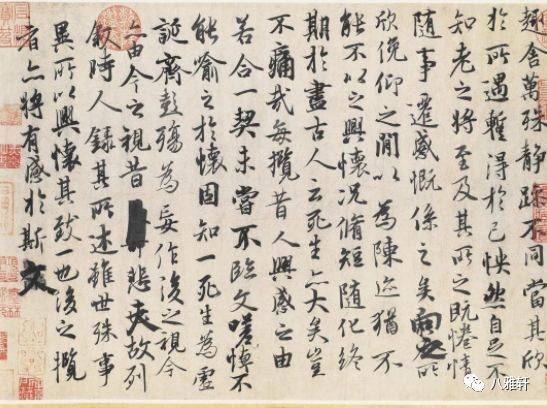 趣舍萬殊静躁不同當其欣
於所遇蹔得於己怏然自足不
知老之將至及其所之既惓情
隨事遷感慨係之矣向之所
欣俛仰之閒以為陳迹猶不
能不以之興懷況脩短隨化終
期於盡古人云死生亦大矣豈
不痛哉每攬昔人興感之由
若合一契未嘗不臨文嗟悼不
能喻之於懷固知一死生為虛
誕齊彭殤為妄作後之視今
亦由今之視昔悲夫故列
敘時人錄其所述雖世殊事
異所以興懷其致一也後之攬
者亦將有感於斯文
八雅轩